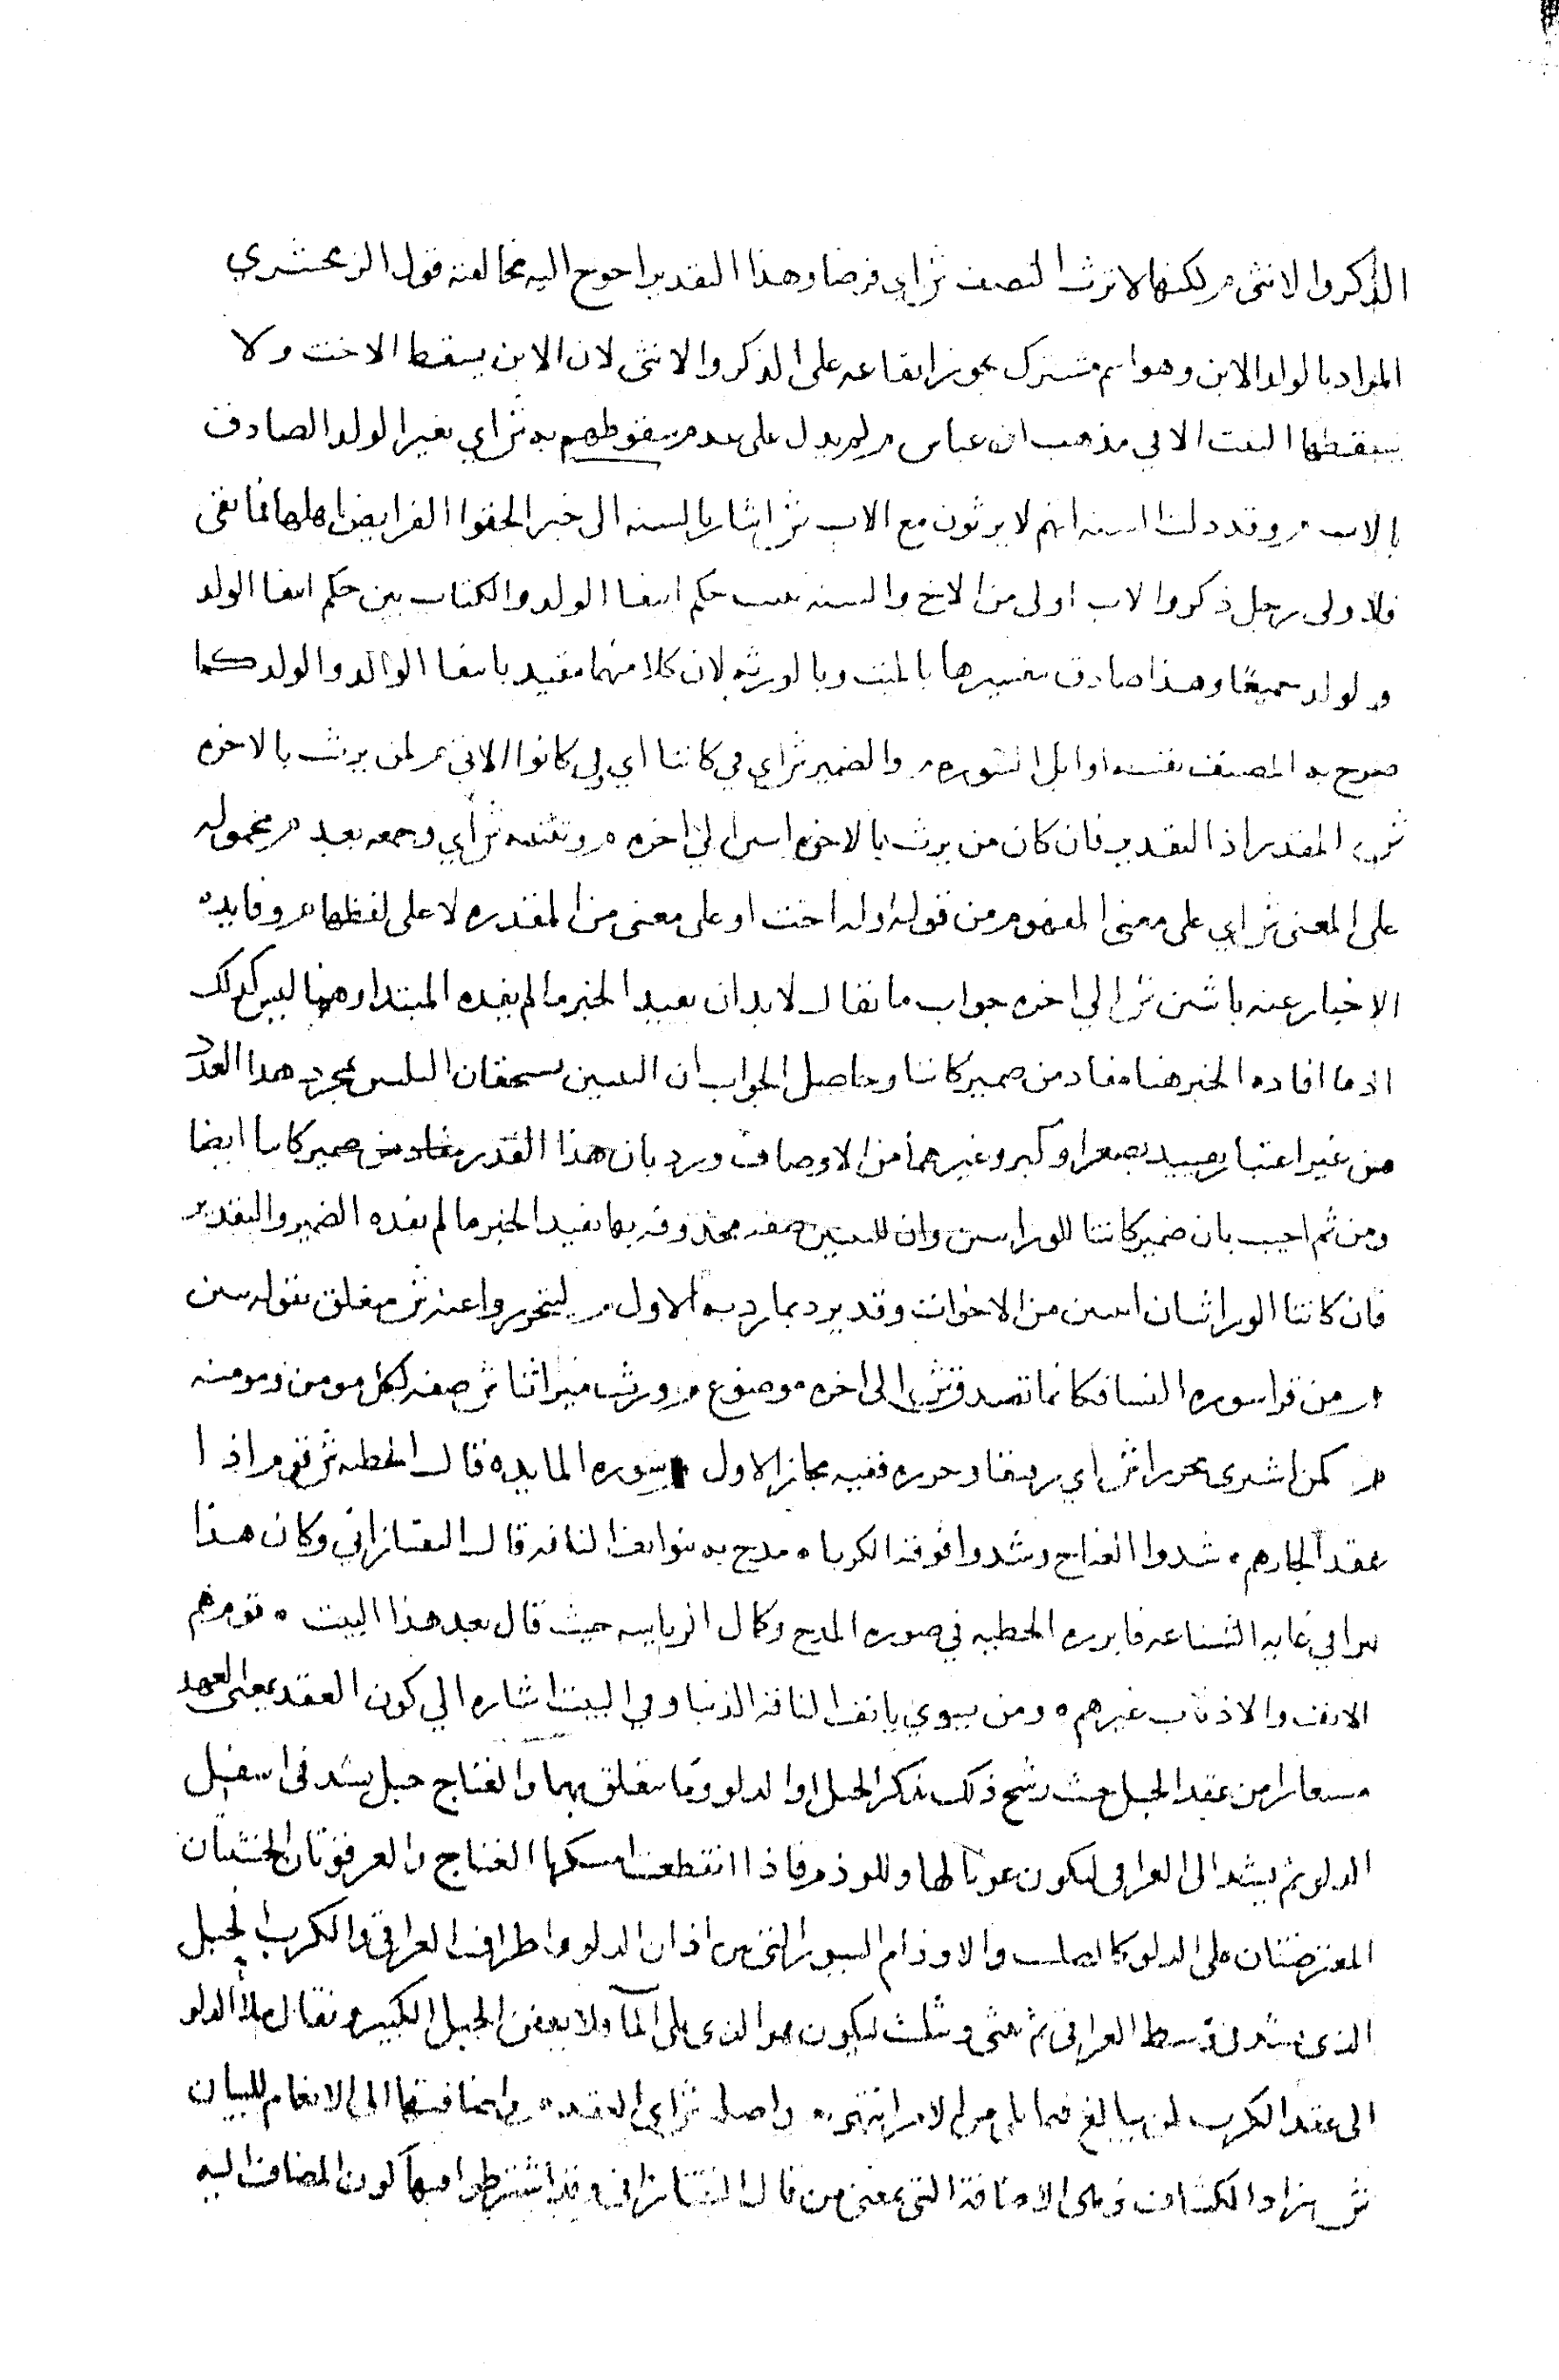 الذكر والانثى م لكنها لا ترث النصف ش اي فرضا وهذا التقدير احوج اليه مخالفته قول الزمخشري
المراد بالولد الابن وهو اسم مشترك يجوز ايقاعه على الذكر والانثى لان الابن يسقط الاخت ولا
يسقطها البنت الا في مذهب ابن عباس م لم يدل على عدم سقوطهم به ش اي بغير الولد الصادق
بالاب م وقد دلت السنه انهم لا يرثون مع الاب ش اشار بالسنه الى خبر الحقوا الفرايض باهلها فما بقي
فلاولى رجل ذكر والاب اولى من الاخ والسنه بينت حكم انتفا الوالد والكتاب بين حكم انتفا الولد
م لوالد جميعا وهذا صادق بتفسيرها بالميت وبالورثه لان كلا منهما مقيد بانتفا الوالد والولد كما
صرح به المصنف نفسه اوايل السوره م والضمير ش اي في كانتا اي في كانوا الاتي م لمن يرث بالاخوه
ش المقدر اذ التقدير فان كان من يرث بالاخوه اثنين الى اخره م وتثنيته ش اي وجمعه بعد م محموله
على المعنى ش اي على معنى المفهوم من قوله وله اخت او على معنى من المقدره لا على لفظها م وفايده
الاخبار عنه باثنين ش الى اخره جواب ما يقال لا بد ان يفيد الخبر ما لم يفده المبتدا وهنا ليس كذلك
اذ ما افاده الخبر هنا مفاد من ضمير كانتا وحاصل الجواب ان الثنتين يستحقان الثلثين بمجرد هذا العدد
من غير اعتبار تقييد بصغر او كبر وغيرهما من الاوصاف ورد بان هذا القدر مفاد من ضمير كانتا ايضا
ومن ثم اجيب بان ضمير كانتا للوارثتين وان للثنتين صفه محذوفه بها يفيد الخبر ما لم يفده الضمير والتقدير
فان كانتا الوارثتان اثنتين من الاخوات وقد يرد بما رد به الاول م ليتحرزوا عنه ش متعلق بقوله يبين
م من قرا سوره النسا فكانما تصدق ش الى اخره موضوع م وورث ميراثا ش صفه لكل مومن ومومنه
م كمن اشترى محررا ش اي رقيقا وحرره ففيه مجاز الاول سوره المايده قال الحطيه ش قوم اذا
عقدا لجارهم ه شدوا العناج وشدوا فوقه الكربا ه مدح به بنو انف الناقه قال التفتازاني وكان هذا
نبزا في غايه الشناعه فابرزه الحطيه في صوره المدح وكمال الرياسه حيث قال بعد هذا البيت ه قوم هم
الانف والاذناب غيرهم ه ومن يسوي بانف الناقه الذنبا وفي البيت اشاره الي كون العقد بمعنى العهد
مستعارا من عقد الحبل حيث رشح ذلك بذكر الحبل او الدلو وما يتعلق بهما والعناج حبل يشد في اسفل
الدلو ثم يشد الى العراقي ليكون عونا لها وللوذم فاذا انقطعت امسكها العناج والعرقوتان الخشبتان
المعترضتان على الدلو كالصليب والاوذام السيور التي بين اذان الدلو واطراف العراقي والكرب الحبل
الذي يشد في وسط العراقي ثم يثنى ويثلث ليكون هو الذي يلي المآ ولا يعفن الحبل الكبير ويقال ملأ الدلو
الى عقد الكرب لمن يبالغ فيما يلي من الامر انتهى م واصله ش اي العقد م واضافتها الى الانعام للبيان
ش زاد الكشاف وهي الاضافة التي بمعنى من قال التفتازاني وقد اشترطوا فيها كون المضاف اليه